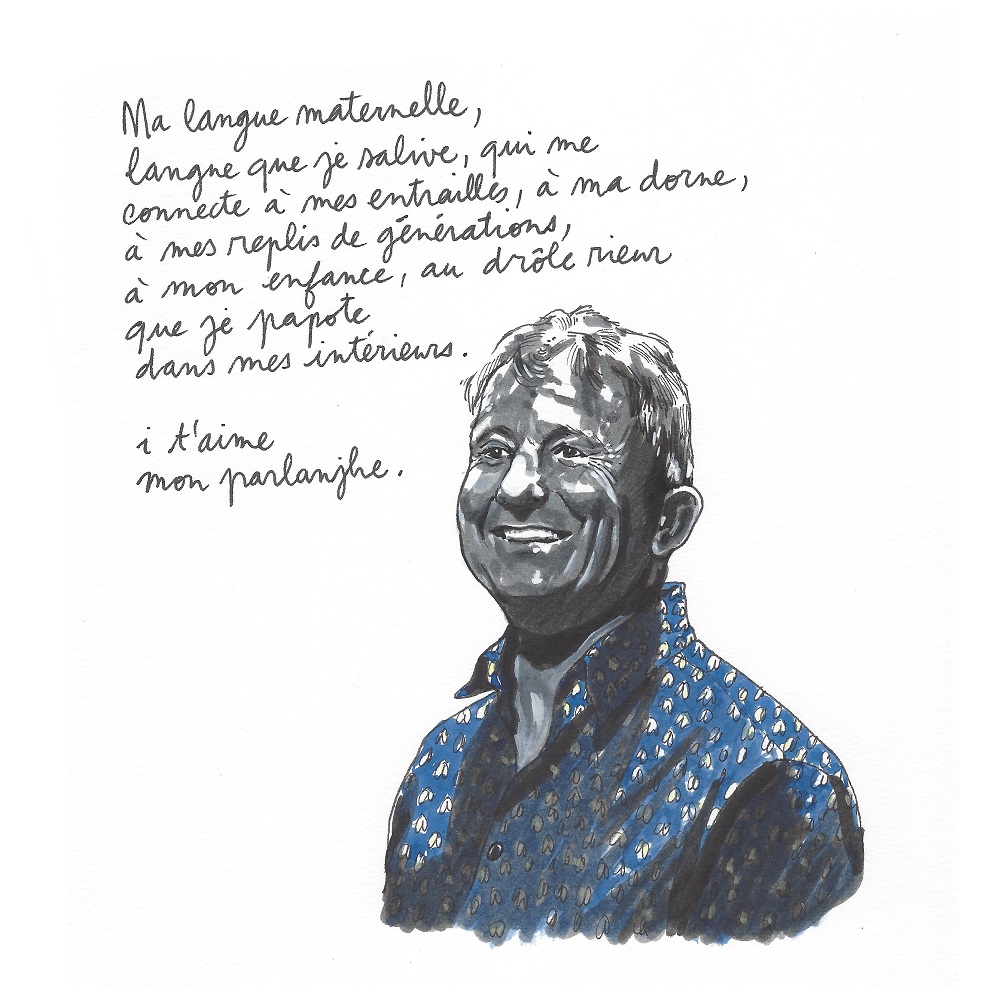 Ma langue maternelle,
langue que je salive, qui me
connecte à mes entrailles, à ma dorne,
à mes replis de générations,
à mon enfance, au drôle rieur
que je papote
dans mes intérieurs.
i t'aime
mon parlanjhe.